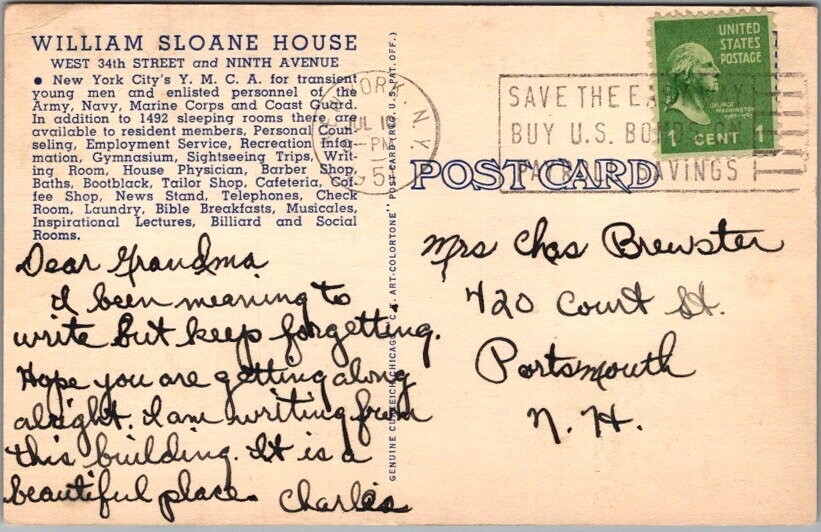 WILLIAM SLOANE HOUSE
WEST 34th STREET and NINTH AVENUE
• New York City's Y. M. C. A. for transient
young men and enlisted personnel of the
Army, Navy, Marine Corps and Coast Guard.
In addition to 1492 sleeping rooms there are
available to resident members, Personal Coun-
seling, Employment Service, Recreation Infor-
mation, Gymnasium, Sightseeing Trips, Writ-
ing Room, House Physician, Barber Shop,
Baths, Bootblack, Tailor Shop, Cafeteria, Cof-
fee Shop, News Stand, Telephones, Check
Room, Laundry, Bible Breakfasts, Musicales,
Inspirational Lectures, Billiard and Social
Rooms.
Dear Grandma
I been meaning to
write but keep forgetting.
Hope you are getting along
alright. I am writing from
this building. It is a
beautiful place. Charles
GENUINE CURTEICH-CHICAGO "C.T. ART-COLORTONE" POST CARD (REG. U.S. PAT. OFF.)
YORK, N.Y.
JUL
PM
SAVE THE EASY WAY
BUY U.S. BONDS
PAYROLL SAVINGS
UNITED
STATES
POSTAGE
GEORGE
WASHINGTON
1 CENT 1
POST CARD
Mrs Chas Brewster
420 Court St.
Portsmouth
N. H.